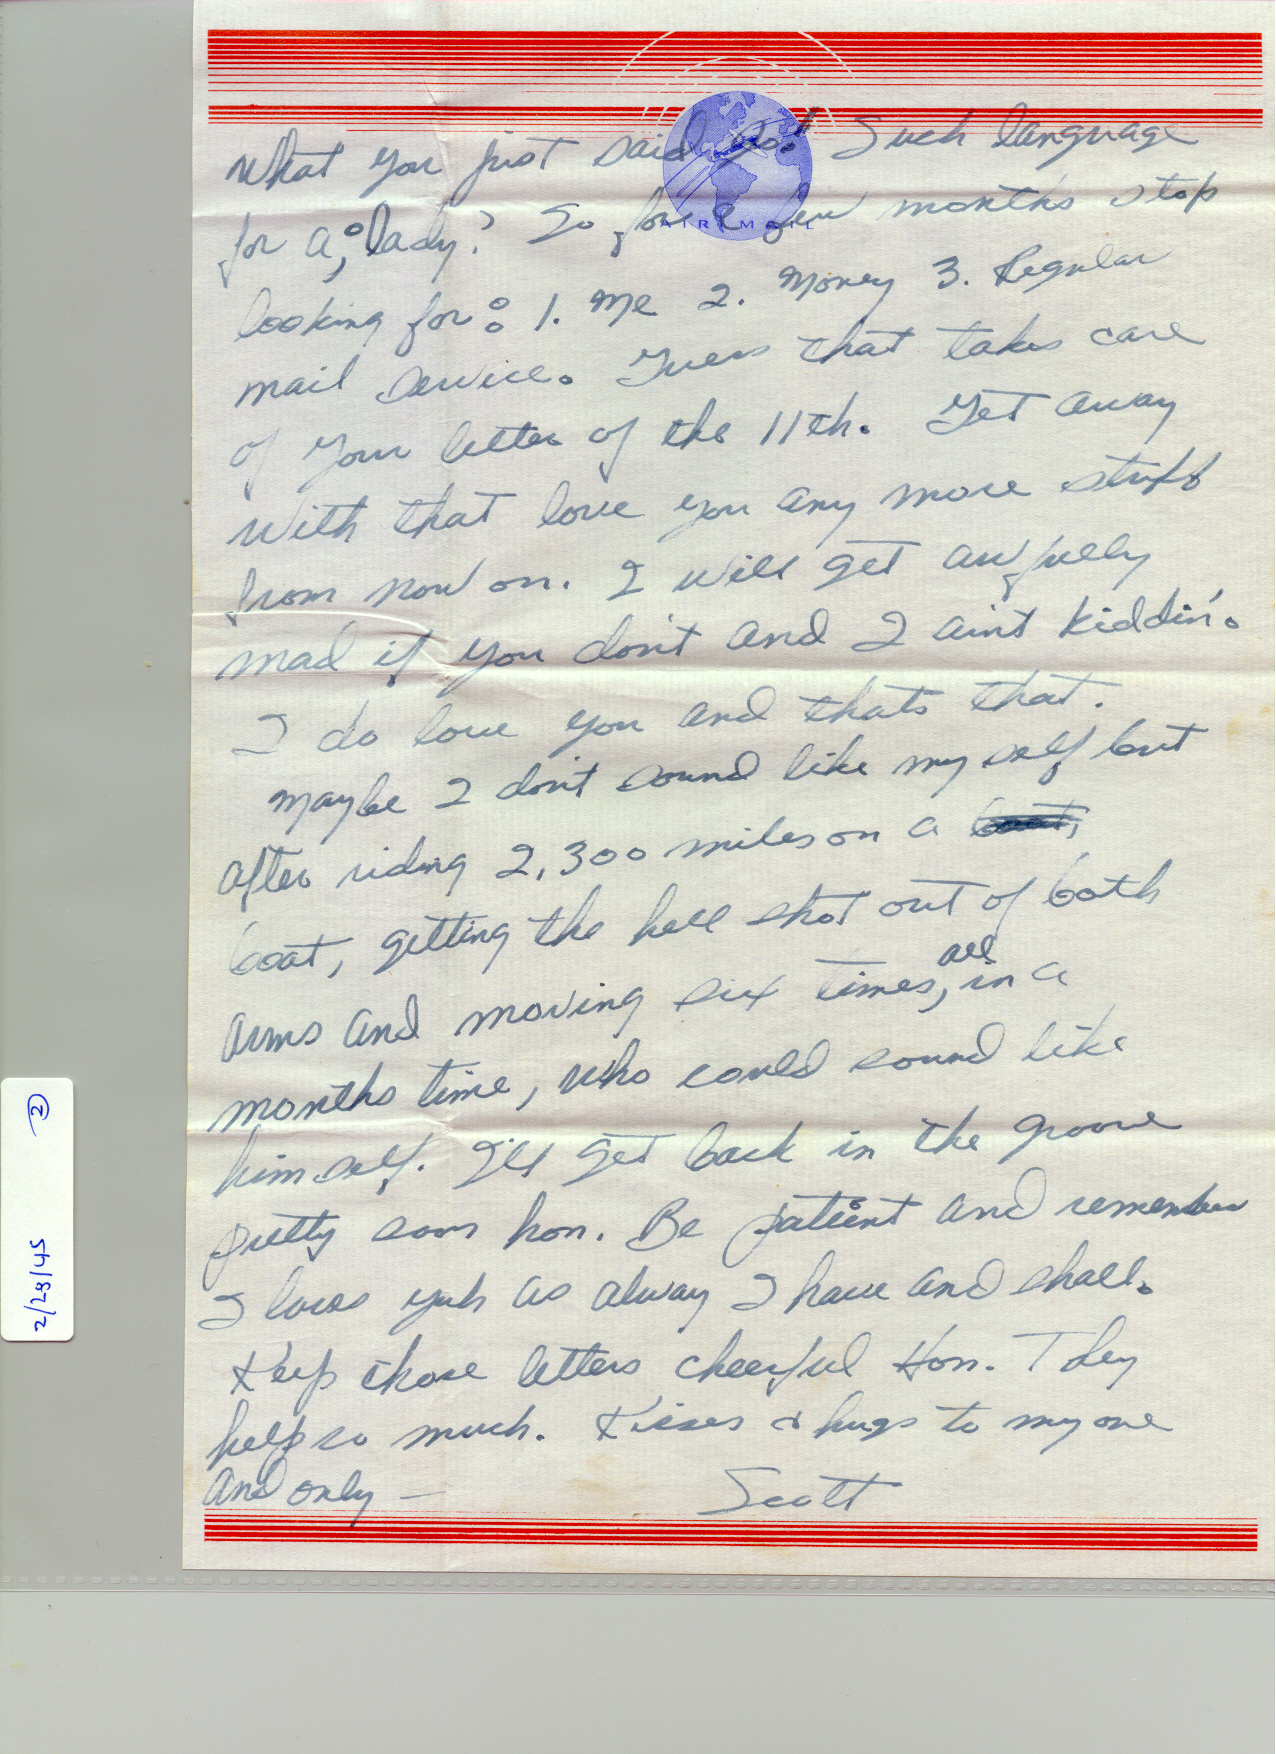 what you just said Jo! Such language
for a, lady? So for a few months stop
looking for: 1. Me 2. Money 3. Regular
mail service. Guess that takes care
of your letter of the 11th. Get away
with that love you any more stuff
from now on. I will get awfully
mad if you don't and I ain't kiddin'.
I do love you and thats that.
Maybe I don't sound like my self but
after riding 2,300 miles on a
boat, getting the hell shot out of both
arms and moving six times, all in a
months time, who could sound like
himself. I'll get back in the groove
pretty soon hon. Be patient and remember
I loves yuh as alway I have and shall.
Keep those letters cheerful Hon. They
help so much. Kisses & hugs to my one
and only —
Scott
AIR MAIL
2/28/45 2